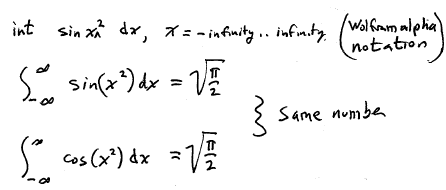 int sin x^2 dx, x = -infinity .. infinity (Wolframalpha notation)
∫_{-∞}^{∞} sin(x²) dx = √(π/2)
} same number
∫_{-∞}^{∞} cos(x²) dx = √(π/2)